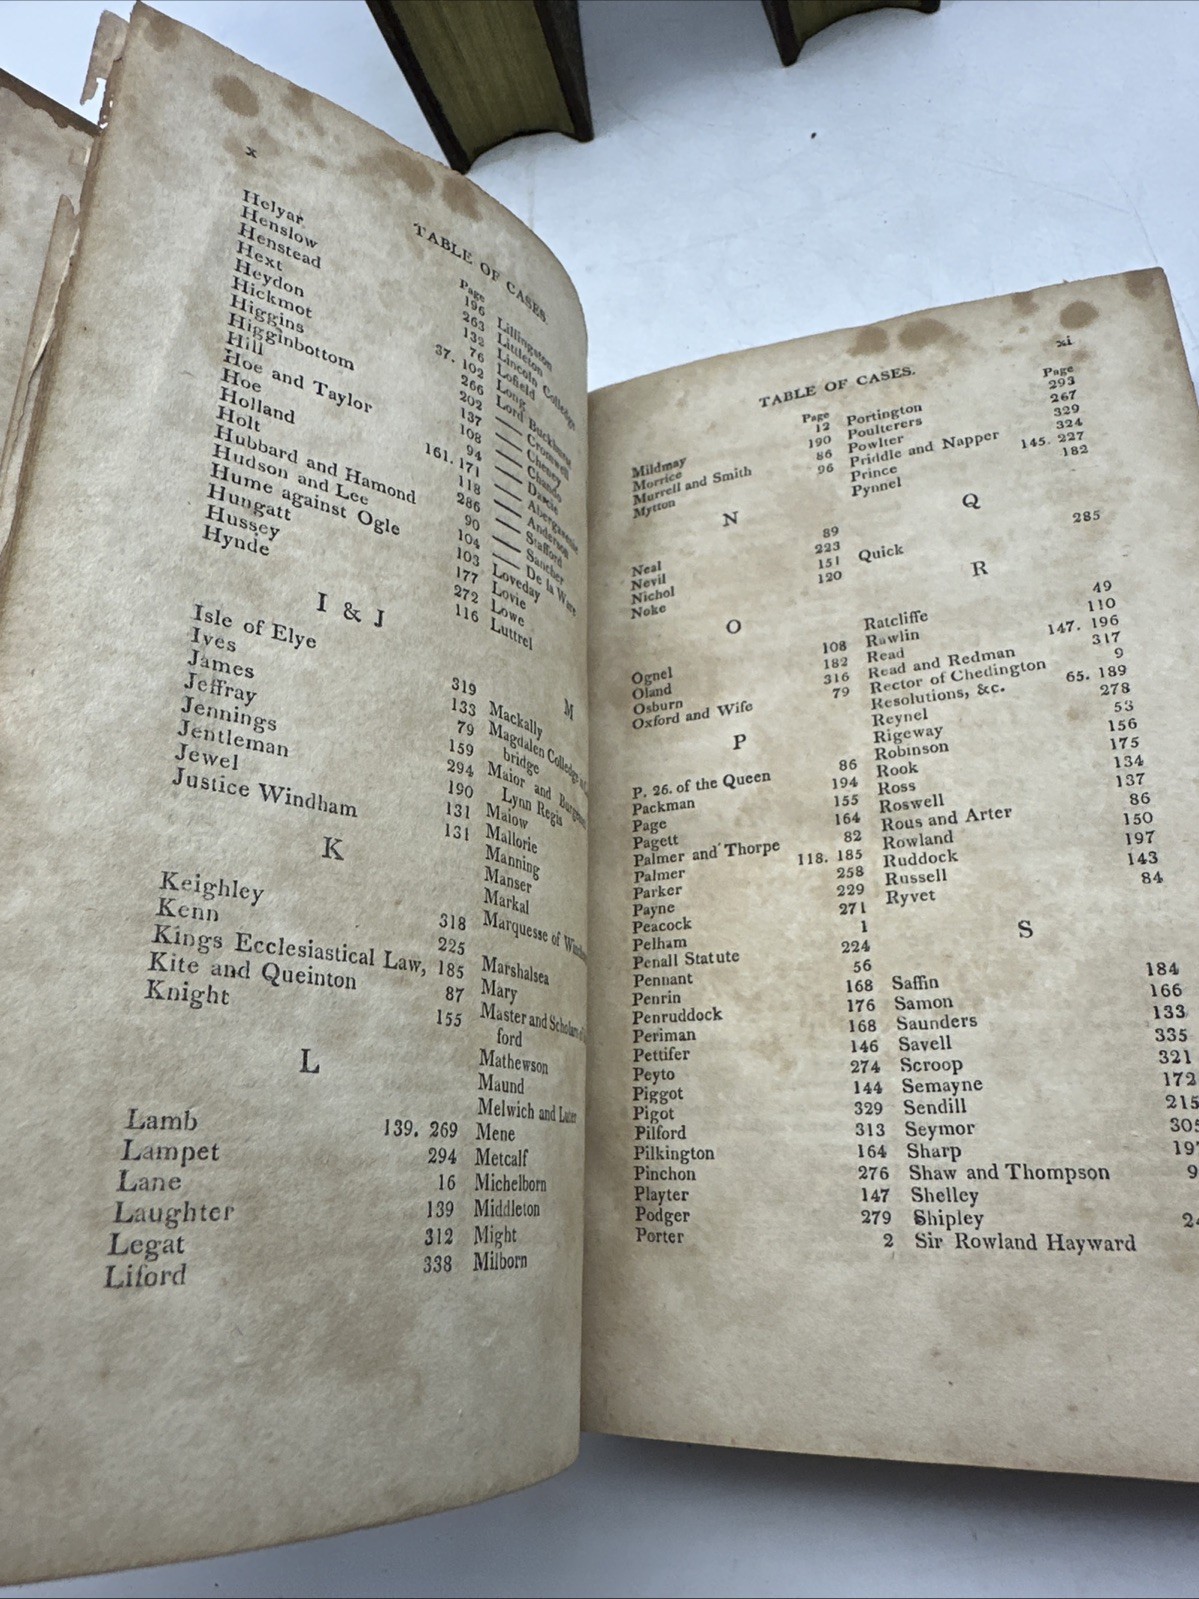 x
TABLE OF CASES.
Page
Helyar 196
Henslow 263
Henstead 132
Hext 76
Heydon 37. 102
Hickmot 266
Higgins 202
Higginbottom 137
Hill 108
Hoe and Taylor 94
Hoe 161. 171
Holland 118
Holt 286
Hubbard and Hamond 90
Hudson and Lee 104
Hume against Ogle 103
Hungatt 177
Hussey 272
Hynde 116
I & J
Isle of Elye 319
Ives 133
James 79
Jeffray 159
Jennings 294
Jentleman 190
Jewel 131
Justice Windham 131
K
Keighley 318
Kenn 225
Kings Ecclesiastical Law, 185
Kite and Queinton 87
Knight 155
L
Lamb 139. 269
Lampet 294
Lane 16
Laughter 139
Legat 312
Liford 338
Lillingston
Littleton
Lincoln Colledge
Lofield
Long
Lord Buckhurst
—— Cromwell
—— Cheney
—— Chando
—— Darcie
—— Abergavenie
—— Anderson
—— Stafford
—— Sancher
—— De la Ware
Loveday
Lovie
Lowe
Luttrel
M
Mackally
Magdalen Colledge
bridge
Maior and
Lynn Regis
Malow
Mallorie
Manning
Manser
Markal
Marquesse of
Marshalsea
Mary
Master and Scholars of
ford
Mathewson
Maund
Melwich and Luter
Mene
Metcalf
Michelborn
Middleton
Might
Milborn
xi
TABLE OF CASES.
Page
Mildmay 12
Morrice 190
Murrell and Smith 86
Mytton 96
N
Neal 89
Nevil 223
Nichol 151
Noke 120
O
Ognel 108
Oland 182
Osburn 316
Oxford and Wife 79
P
P. 26. of the Queen 86
Packman 194
Page 155
Pagett 164
Palmer and Thorpe 82
Palmer 118. 185
Parker 258
Payne 229
Peacock 271
Pelham 1
Penall Statute 224
Pennant 56
Penrin 168
Penruddock 176
Periman 168
Pettifer 146
Peyto 274
Piggot 144
Pigot 329
Pilford 313
Pilkington 164
Pinchon 276
Playter 147
Podger 279
Porter 2
Page
Portington 293
Poulterers 267
Powlter 329
Priddle and Napper 324
Prince 145. 227
Pynnel 182
Q
Quick 285
R
Ratcliffe 49
Rawlin 110
Read 147. 196
Read and Redman 317
Rector of Chedington 9
Resolutions, &c. 65. 189
Reynel 278
Rigeway 53
Robinson 156
Rook 175
Ross 134
Roswell 137
Rous and Arter 86
Rowland 150
Ruddock 197
Russell 143
Ryvet 84
S
Saffin 184
Samon 166
Saunders 133
Savell 335
Scroop 321
Semayne 172
Sendill 215
Seymor 305
Sharp 197
Shaw and Thompson 9
Shelley
Shipley 24
Sir Rowland Hayward